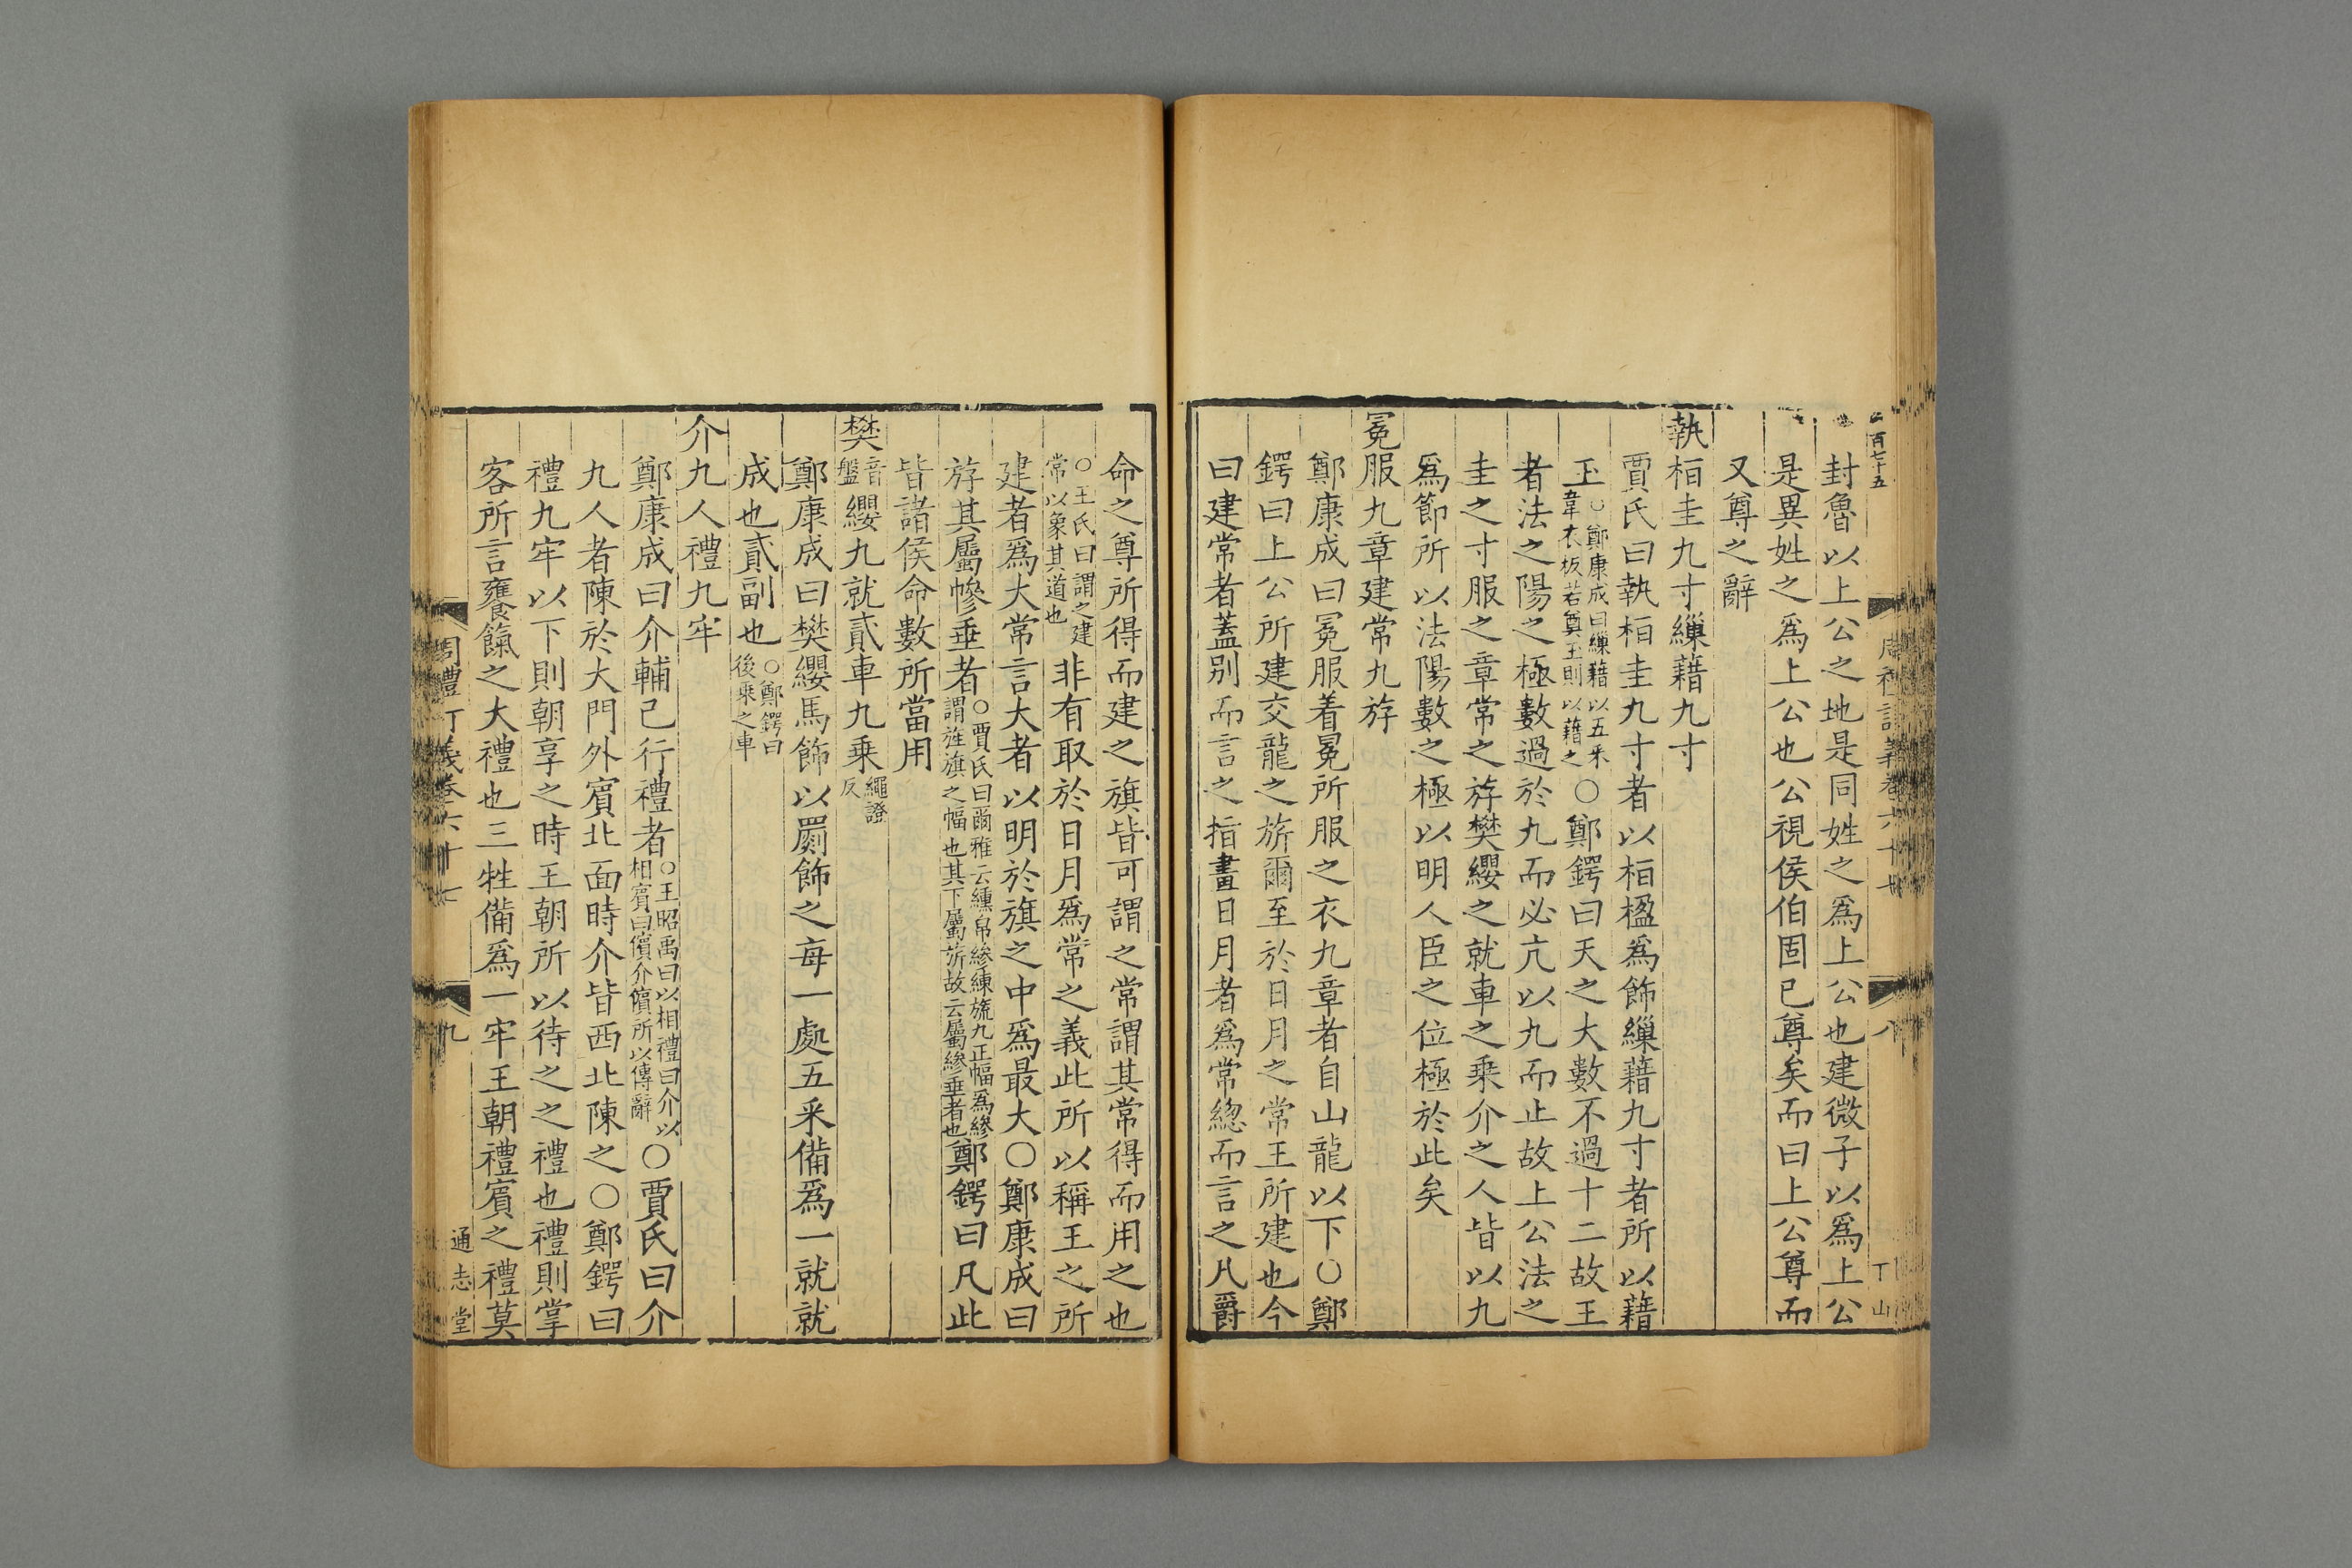 二百七十五
周禮訂義卷六十七
八
丁山
封魯以上公之地是同姓之爲上公也建微子以爲上公
是異姓之爲上公也公視侯伯固已尊矣而曰上公尊而
又尊之辭
執桓圭九寸繅藉九寸
賈氏曰執桓圭九寸者以桓楹爲飾繅藉九寸者所以藉
玉○鄭康成曰繅藉以五采韋衣板若奠玉則以藉之○鄭鍔曰天之大數不過十二故王
者法之陽之極數過於九而必亢以九而止故上公法之
圭之寸服之章常之斿樊纓之就車之乘介之人皆以九
爲節所以法陽數之極以明人臣之位極於此矣
冕服九章建常九斿
鄭康成曰冕服着冕所服之衣九章者自山龍以下○鄭
鍔曰上公所建交龍之旂爾至於日月之常王所建也今
曰建常者蓋别而言之指畫日月者爲常緫而言之凡爵
命之尊所得而建之旗皆可謂之常謂其常得而用之也
○王氏曰謂之建常以象其道也非有取於日月爲常之義此所以稱王之所
建者爲大常言大者以明於旗之中爲最大○鄭康成曰
斿其屬幓垂者○賈氏曰爾雅云纁帛縿練旒九正幅爲縿謂旌旗之幅也其下屬旂故云屬縿垂者也鄭鍔曰凡此
皆諸侯命數所當用
樊音盤纓九就貳車九乘繩證反
鄭康成曰樊纓馬飾以罽飾之每一處五采備爲一就就
成也貳副也○鄭鍔曰後乘之車
介九人禮九牢
鄭康成曰介輔己行禮者○王昭禹曰以相禮曰介以相賓曰儐介儐所以傳辭○賈氏曰介
九人者陳於大門外賓北面時介皆西北陳之○鄭鍔曰
禮九牢以下則朝享之時王朝所以待之之禮也禮則掌
客所言饔餼之大禮也三牲備爲一牢王朝禮賓之禮莫
周禮訂義卷六十七
九
通志堂